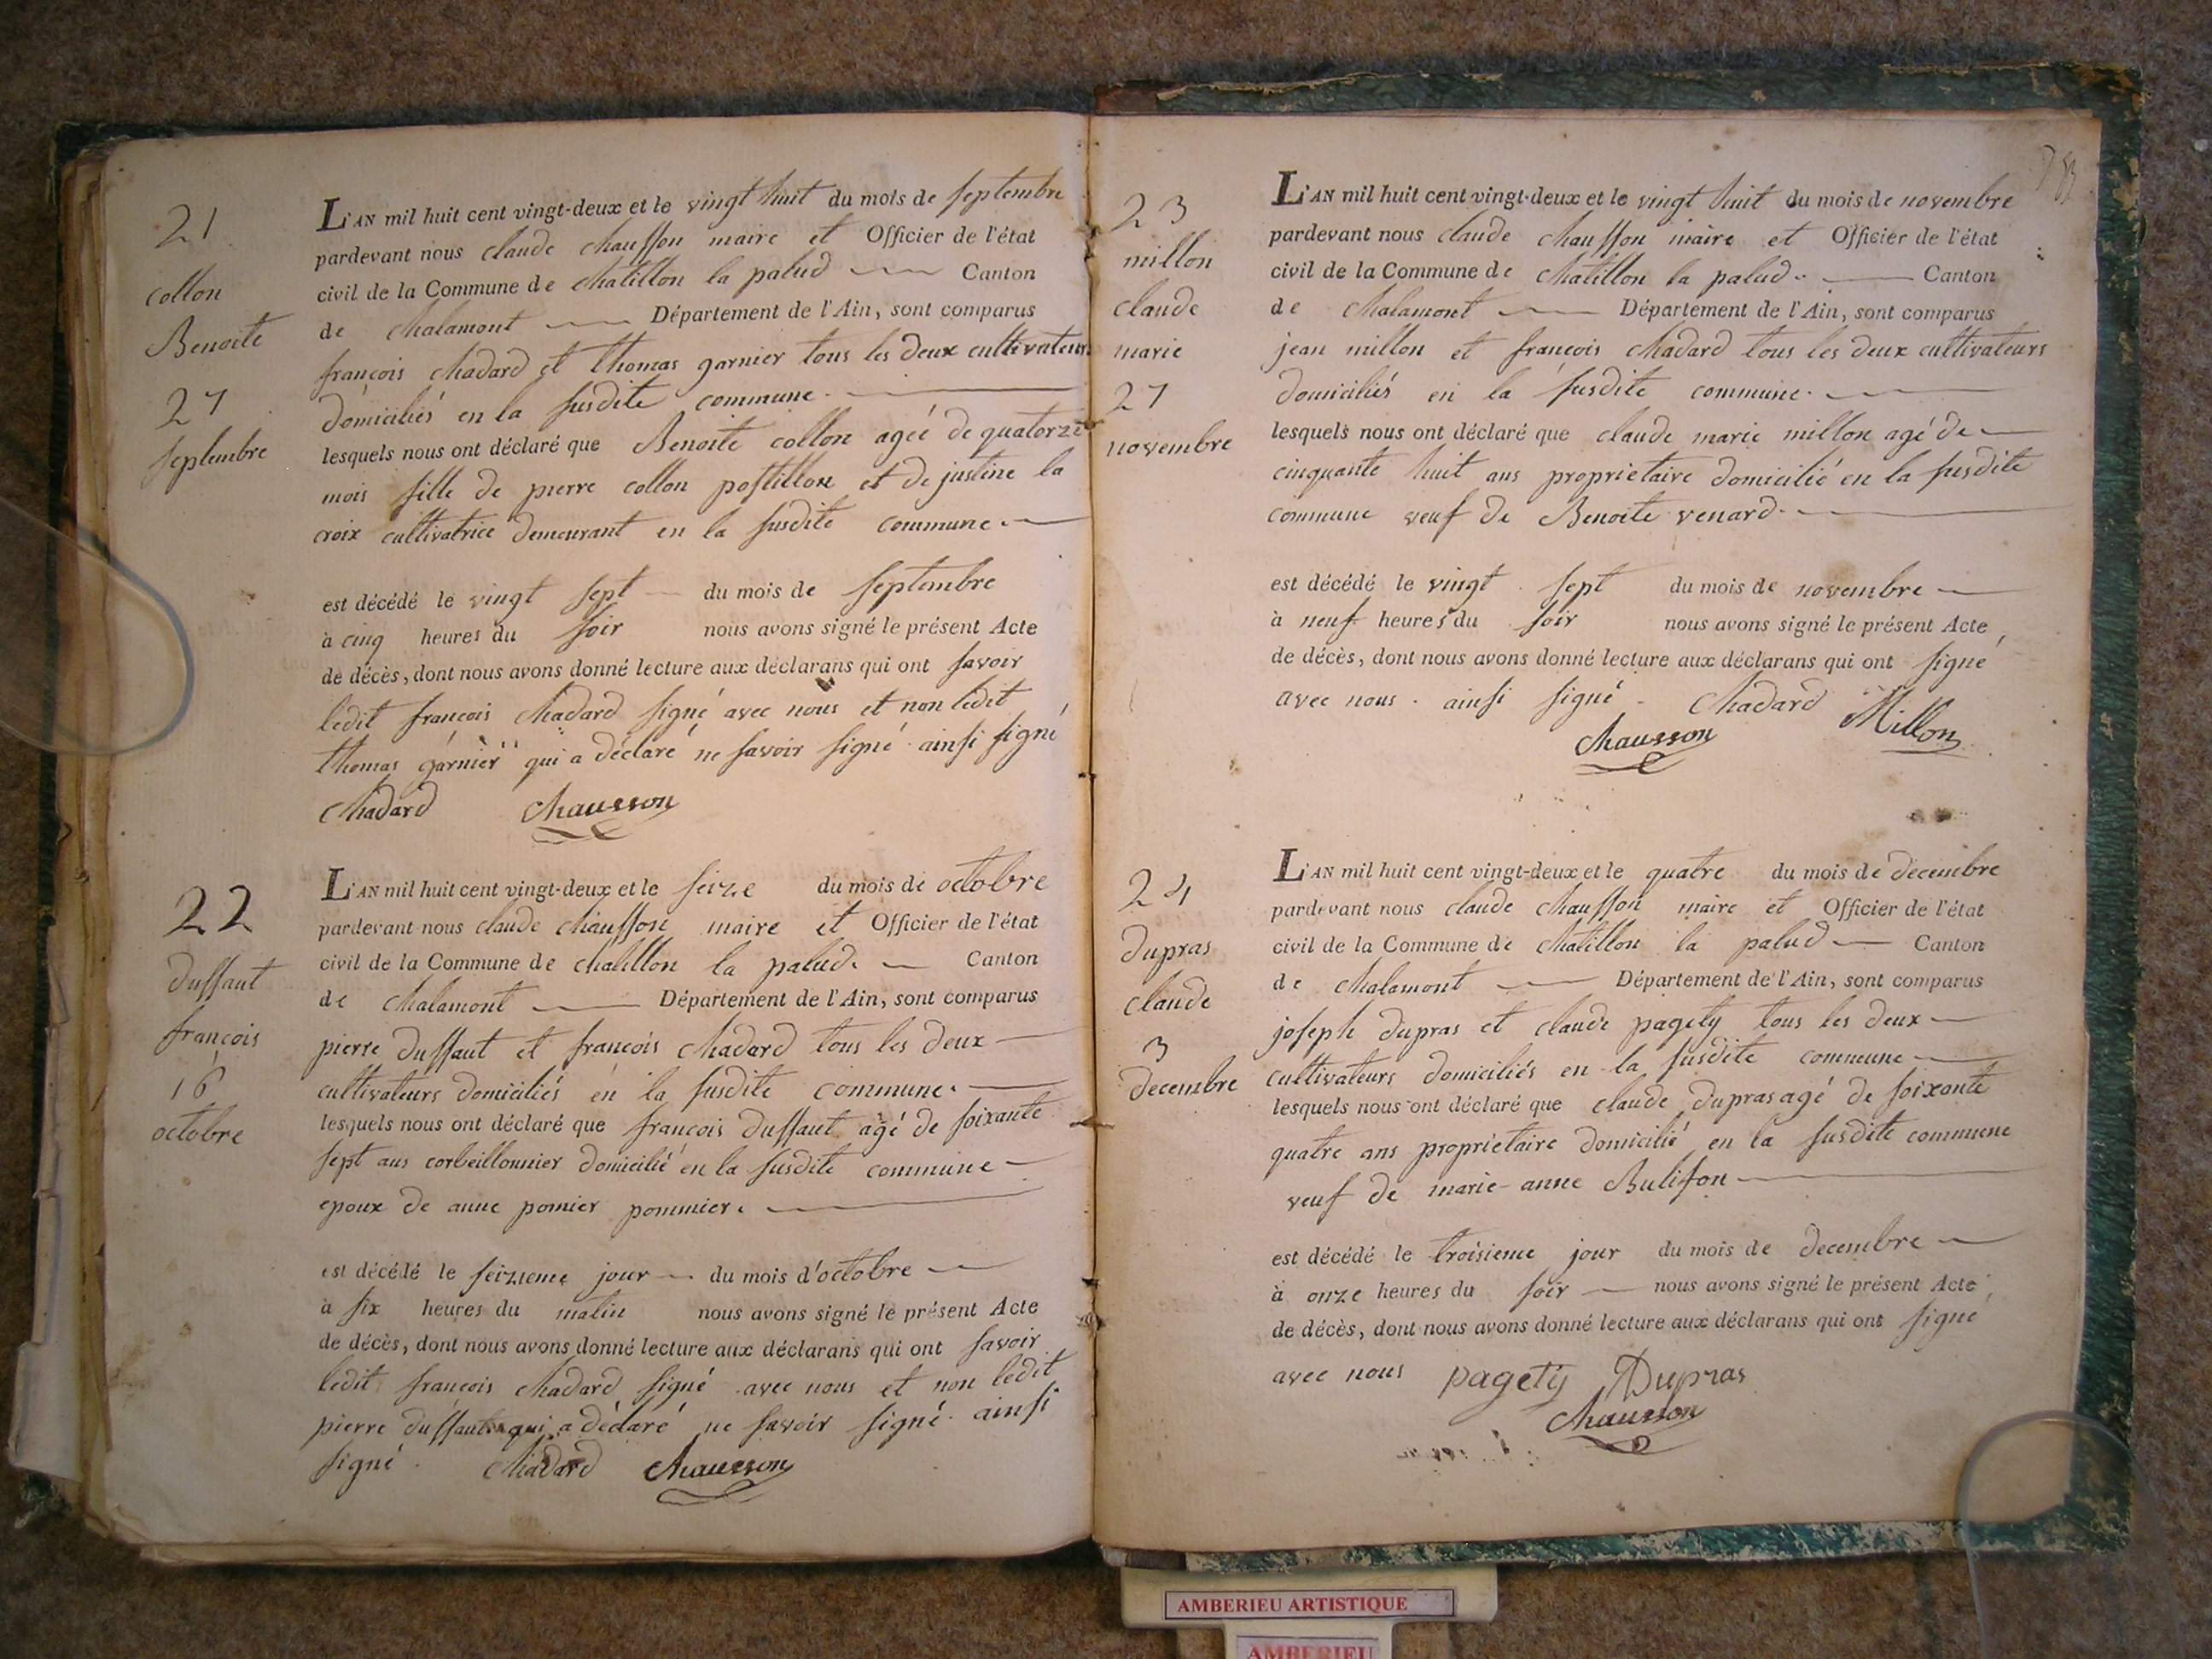 21
collon
Benoite
27
septembre
L'AN mil huit cent vingt-deux et le vingt huit du mois de septembre
pardevant nous claude chausson maire et Officier de l'état
civil de la Commune de chatillon la palud Canton
de chalamont Département de l'Ain, sont comparus
françois chadard et thomas garnier tous les deux cultivateurs
domiciliés en la susdite commune.
lesquels nous ont déclaré que Benoite collon agée de quatorze
mois fille de pierre collon postillon et de justine la
croix cultivatrice demeurant en la susdite commune.
est décédé le vingt sept du mois de septembre
à cinq heures du soir nous avons signé le présent Acte
de décès, dont nous avons donné lecture aux déclarans qui ont savoir
ledit françois chadard signé avec nous et non ledit
thomas garnier qui a déclaré ne savoir signé. ainsi signé
chadard chausson
22
dussaut
françois
16
octobre
L'AN mil huit cent vingt-deux et le seize du mois de octobre
pardevant nous claude chausson maire et Officier de l'état
civil de la Commune de chatillon la palud. Canton
de chalamont Département de l'Ain, sont comparus
pierre dussaut et françois chadard tous les deux
cultivateurs domiciliés en la susdite commune.
lesquels nous ont déclaré que françois dussaut agé de soixante
sept ans corbeillonnier domicilié en la susdite commune
epoux de anne pomier pommier.
est décédé le seizieme jour du mois d'octobre
à six heures du matin nous avons signé le présent Acte
de décès, dont nous avons donné lecture aux déclarans qui ont savoir
ledit françois chadard signé avec nous et non ledit
pierre dussaut qui a déclaré ne savoir signé. ainsi
signé. chadard chausson
23
millon
claude
marie
27
novembre
L'AN mil huit cent vingt-deux et le vingt huit du mois de novembre
pardevant nous claude chausson maire et Officier de l'état
civil de la Commune de chatillon la palud. Canton
de chalamont Département de l'Ain, sont comparus
jean millon et françois chadard tous les deux cultivateurs
domiciliés en la susdite commune.
lesquels nous ont déclaré que claude marie millon agé de
cinquante huit ans proprietaire domicilié en la susdite
commune veuf de Benoite venard.
est décédé le vingt sept du mois de novembre
à neuf heures du soir nous avons signé le présent Acte
de décès, dont nous avons donné lecture aux déclarans qui ont signé
avec nous. ainsi signé. chadard Millon
chausson
24
dupras
claude
3
decembre
L'AN mil huit cent vingt-deux et le quatre du mois de decembre
pardevant nous claude chausson maire et Officier de l'état
civil de la Commune de chatillon la palud Canton
de chalamont Département de l'Ain, sont comparus
joseph dupras et claude pagety tous les deux
cultivateurs domiciliés en la susdite commune
lesquels nous ont déclaré que claude dupras agé de soixante
quatre ans proprietaire domicilié en la susdite commune
veuf de marie-anne Bulifon
est décédé le troisieme jour du mois de decembre
à onze heures du soir nous avons signé le présent Acte
de décès, dont nous avons donné lecture aux déclarans qui ont signé
avec nous pagety Dupras
chausson
AMBERIEU ARTISTIQUE
AMBERIEU